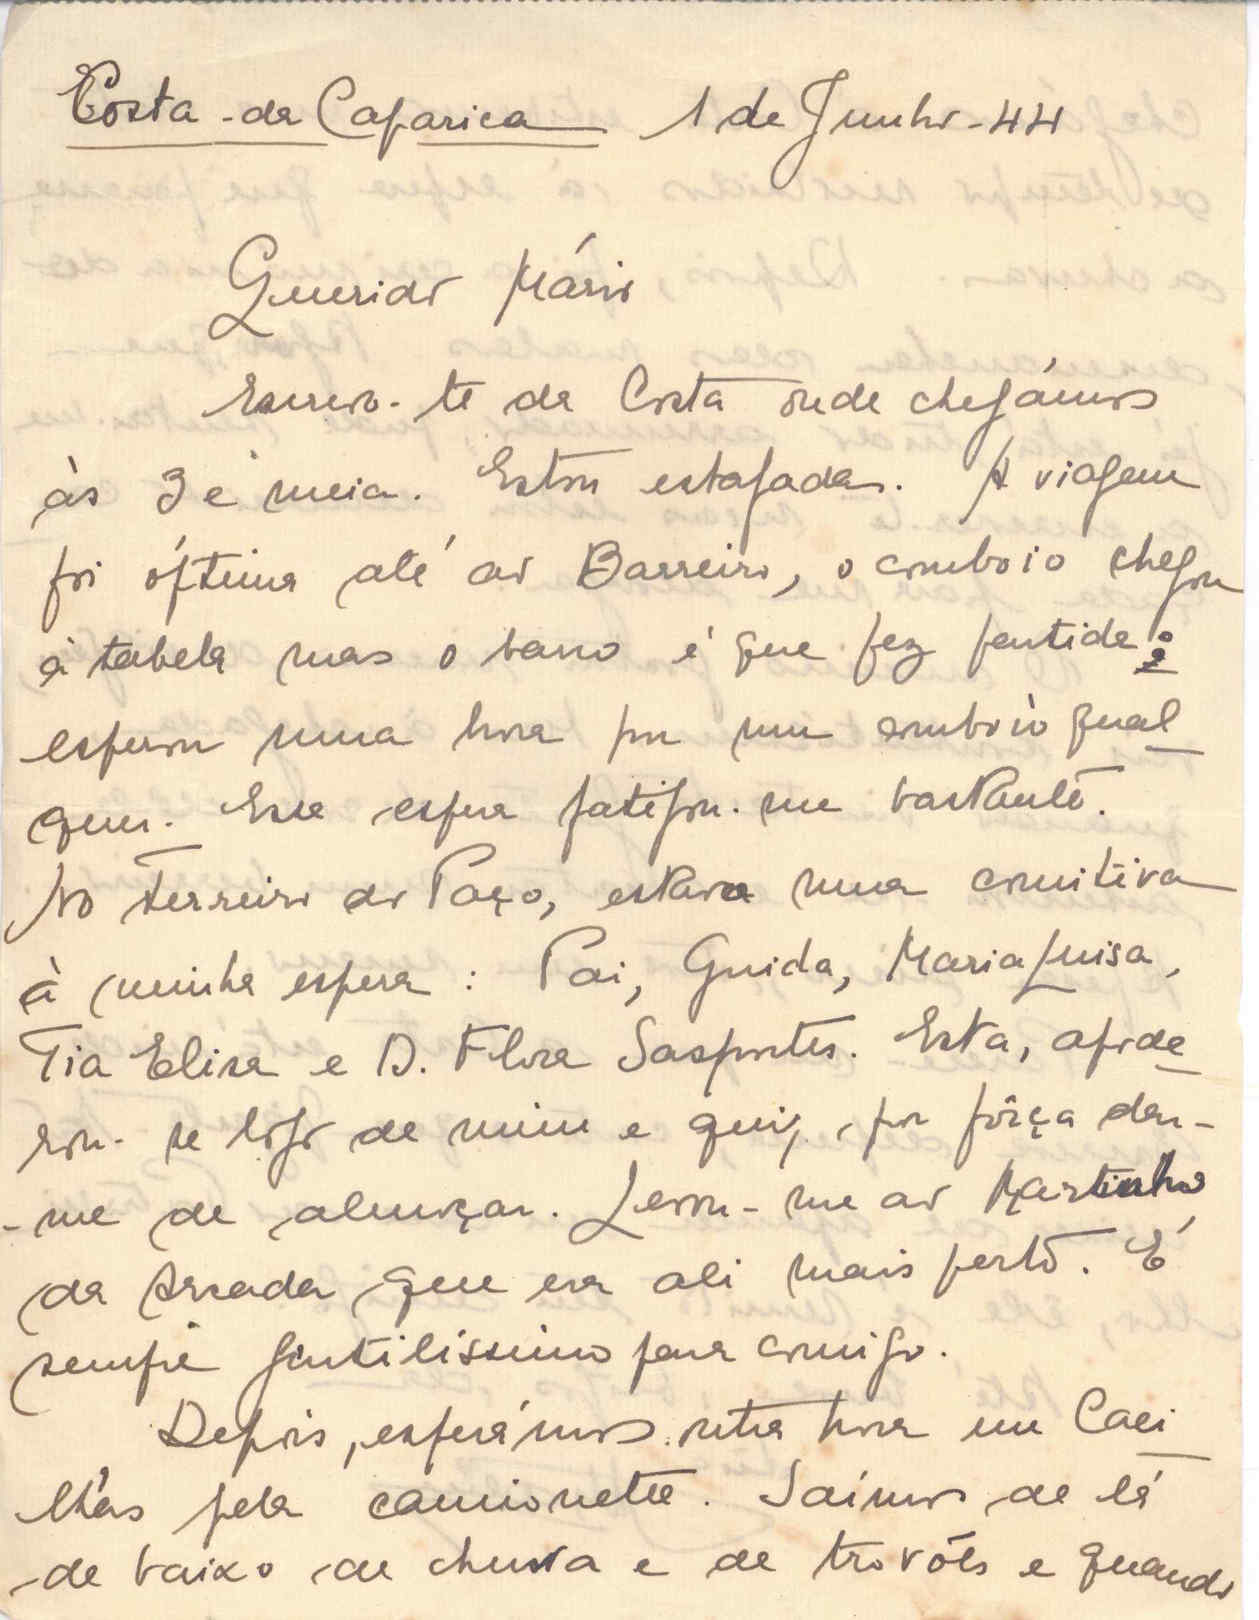 Costa-da Caparica 1 de Junho-44
Querido Mário
Escrevo-te da Costa onde chegámos
às 3 e meia. Estou estafada. A viagem
foi óptima até ao Barreiro, o comboio chegou
à tabela mas o barco é que fez partida:
esperou uma hora por um comboio qual
quer. Essa espera fatigou-me bastante.
No Terreiro do Paço, estava uma comitiva
à minha espera: Pai, Guida, Maria Luisa,
Tia Elisa e D. Flora Sasportes. Esta, apode
rou-se logo de mim e quiz, por fôrça dar-
-me de almoçar. Levou-me ao Martinho
da Arcada que era ali mais perto. É
sempre gentilissimo para comigo.
Depois, esperámos outra hora em Caci
lhas pela camionete. Saímos de lá
de baixo de chuva e de trovões e quando